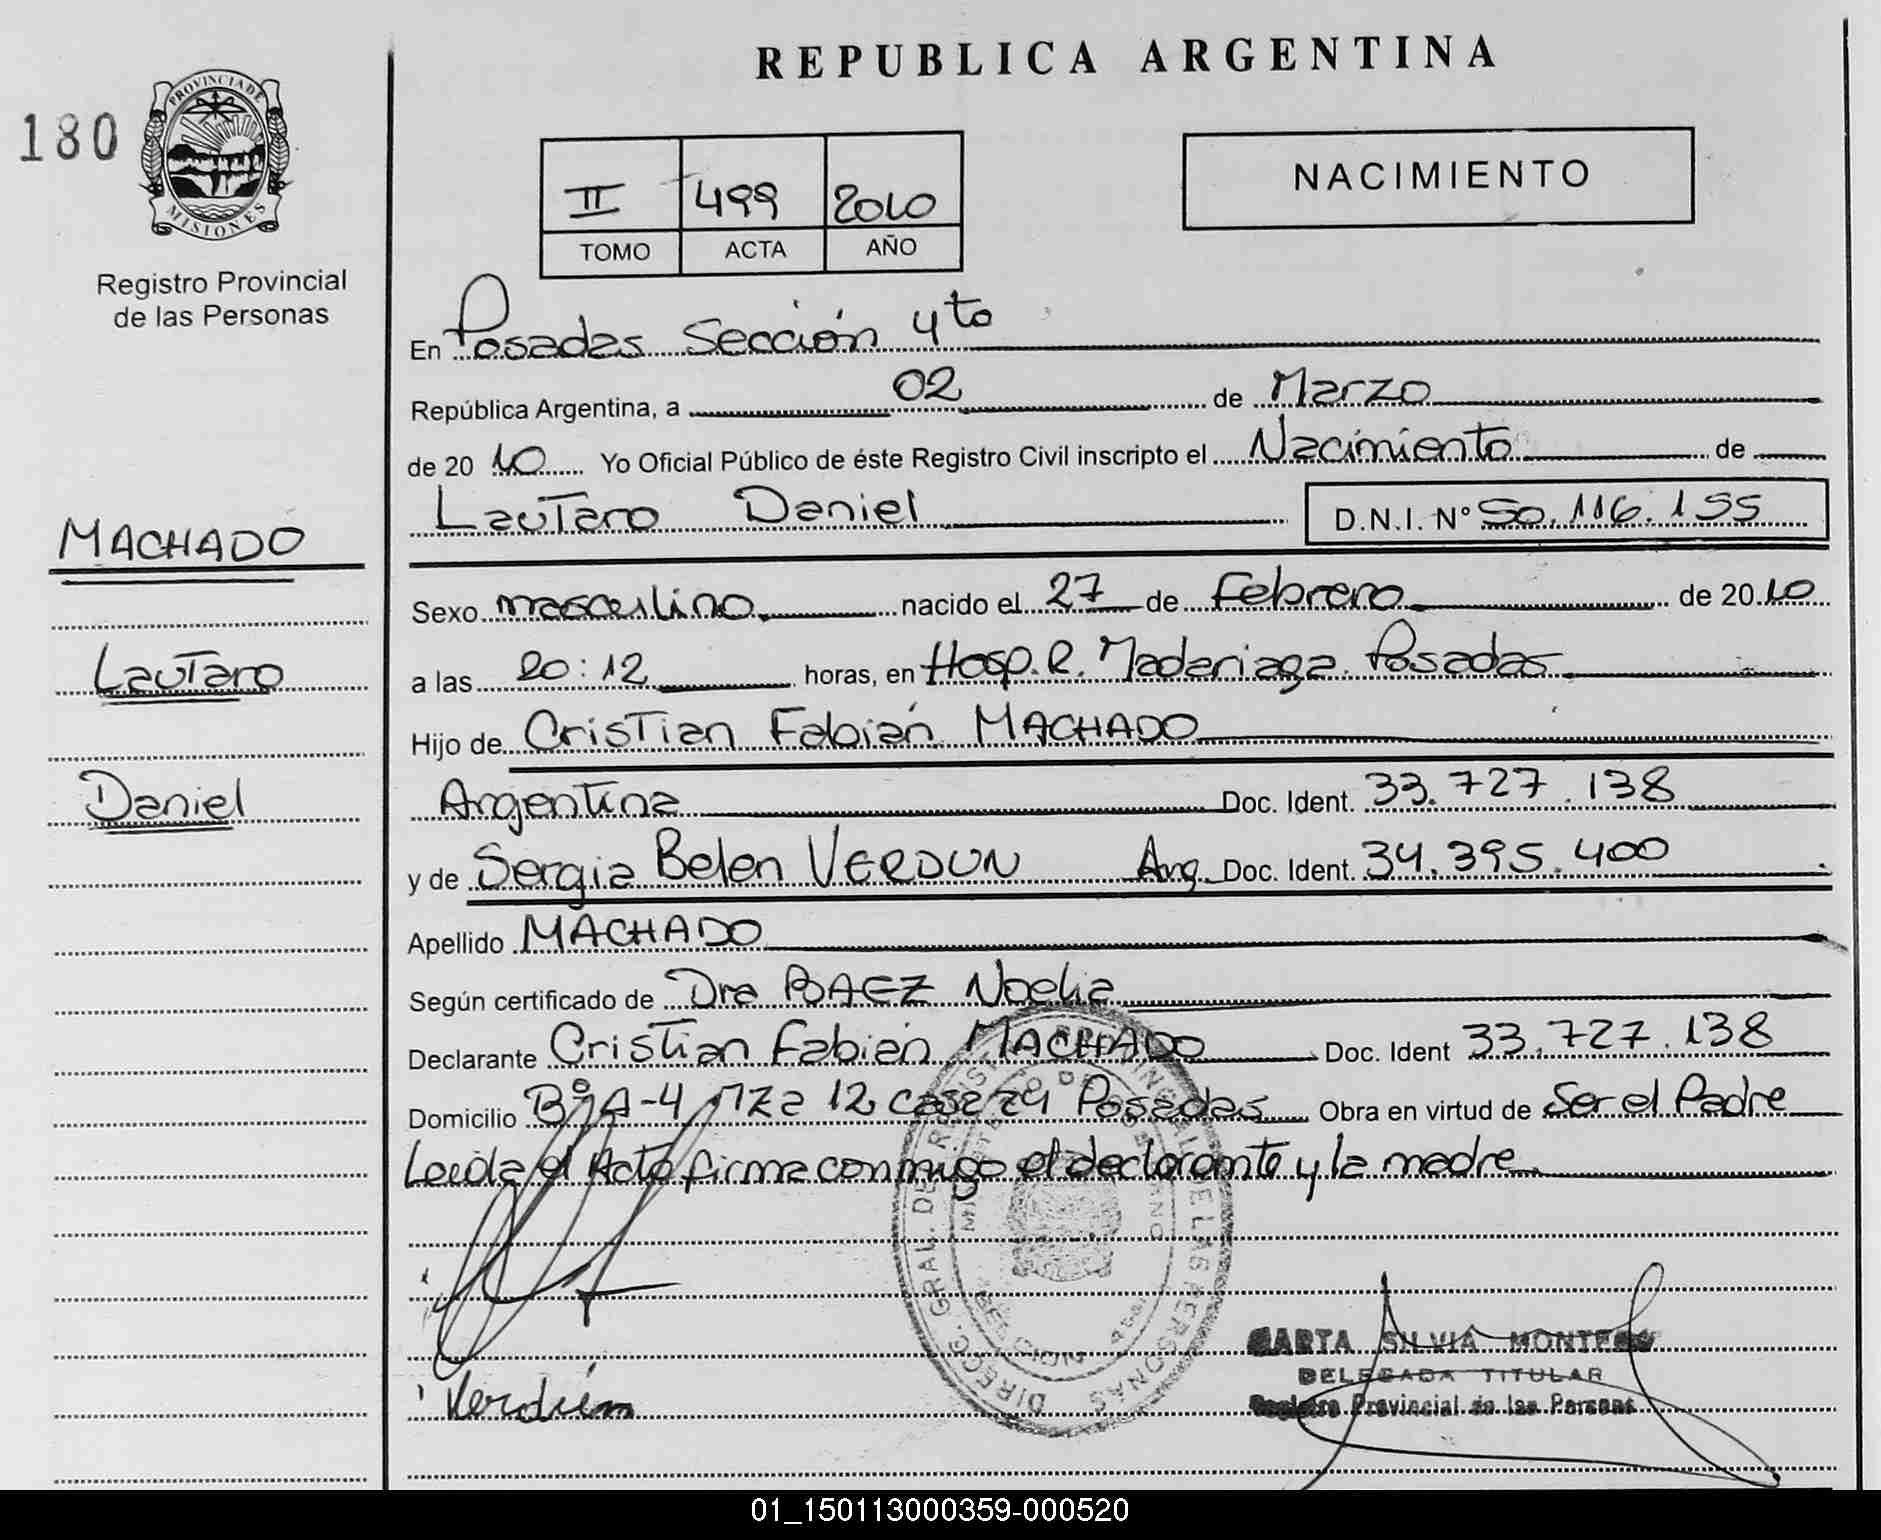 REPUBLICA ARGENTINA
180
PROVINCIA DE
MISIONES
Registro Provincial
de las Personas
II 499 2010
TOMO ACTA AÑO
NACIMIENTO
En Posadas Sección 4to
República Argentina, a 02 de Marzo
de 2010 Yo Oficial Público de éste Registro Civil inscripto el Nacimiento de
Lautaro Daniel D.N.I. N° 50.116.155
MACHADO
Lautaro
Daniel
Sexo masculino nacido el 27 de Febrero de 2010
a las 20:12 horas, en Hosp. R. Madariaga. Posadas
Hijo de Cristian Fabián MACHADO
Argentina Doc. Ident. 33.727.138
y de Sergia Belen VERDUN Arg. Doc. Ident. 34.395.400
Apellido MACHADO
Según certificado de Dra BAEZ Noelia
Declarante Cristian Fabián MACHADO Doc. Ident 33.727.138
Domicilio B° A-4 MZa 12 casa 29 Posadas Obra en virtud de Ser el Padre
Leida el Acta firma conmigo el declarante y la madre
DIRECC. GRAL. DE REGIST PROVINCIAL DE LAS PERSONAS
MINISTERIO DE GOBIERNO
Verdún
MARTA SILVIA MONTERO
DELEGADA TITULAR
Registro Provincial de las Personas
01_150113000359-000520